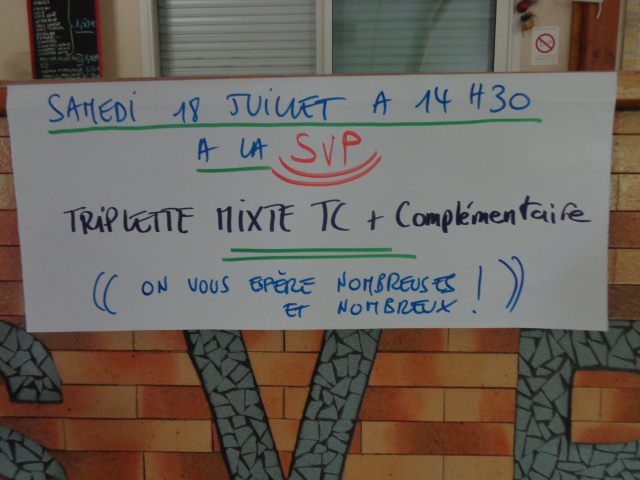 1,50€
SAMEDI 18 JUILLET A 14 H30
A LA SVP
TRIPLETTE MIXTE TC + Complémentaire
(( ON VOUS EPÈRE NOMBREUSES
ET NOMBREUX ! ))
SVP